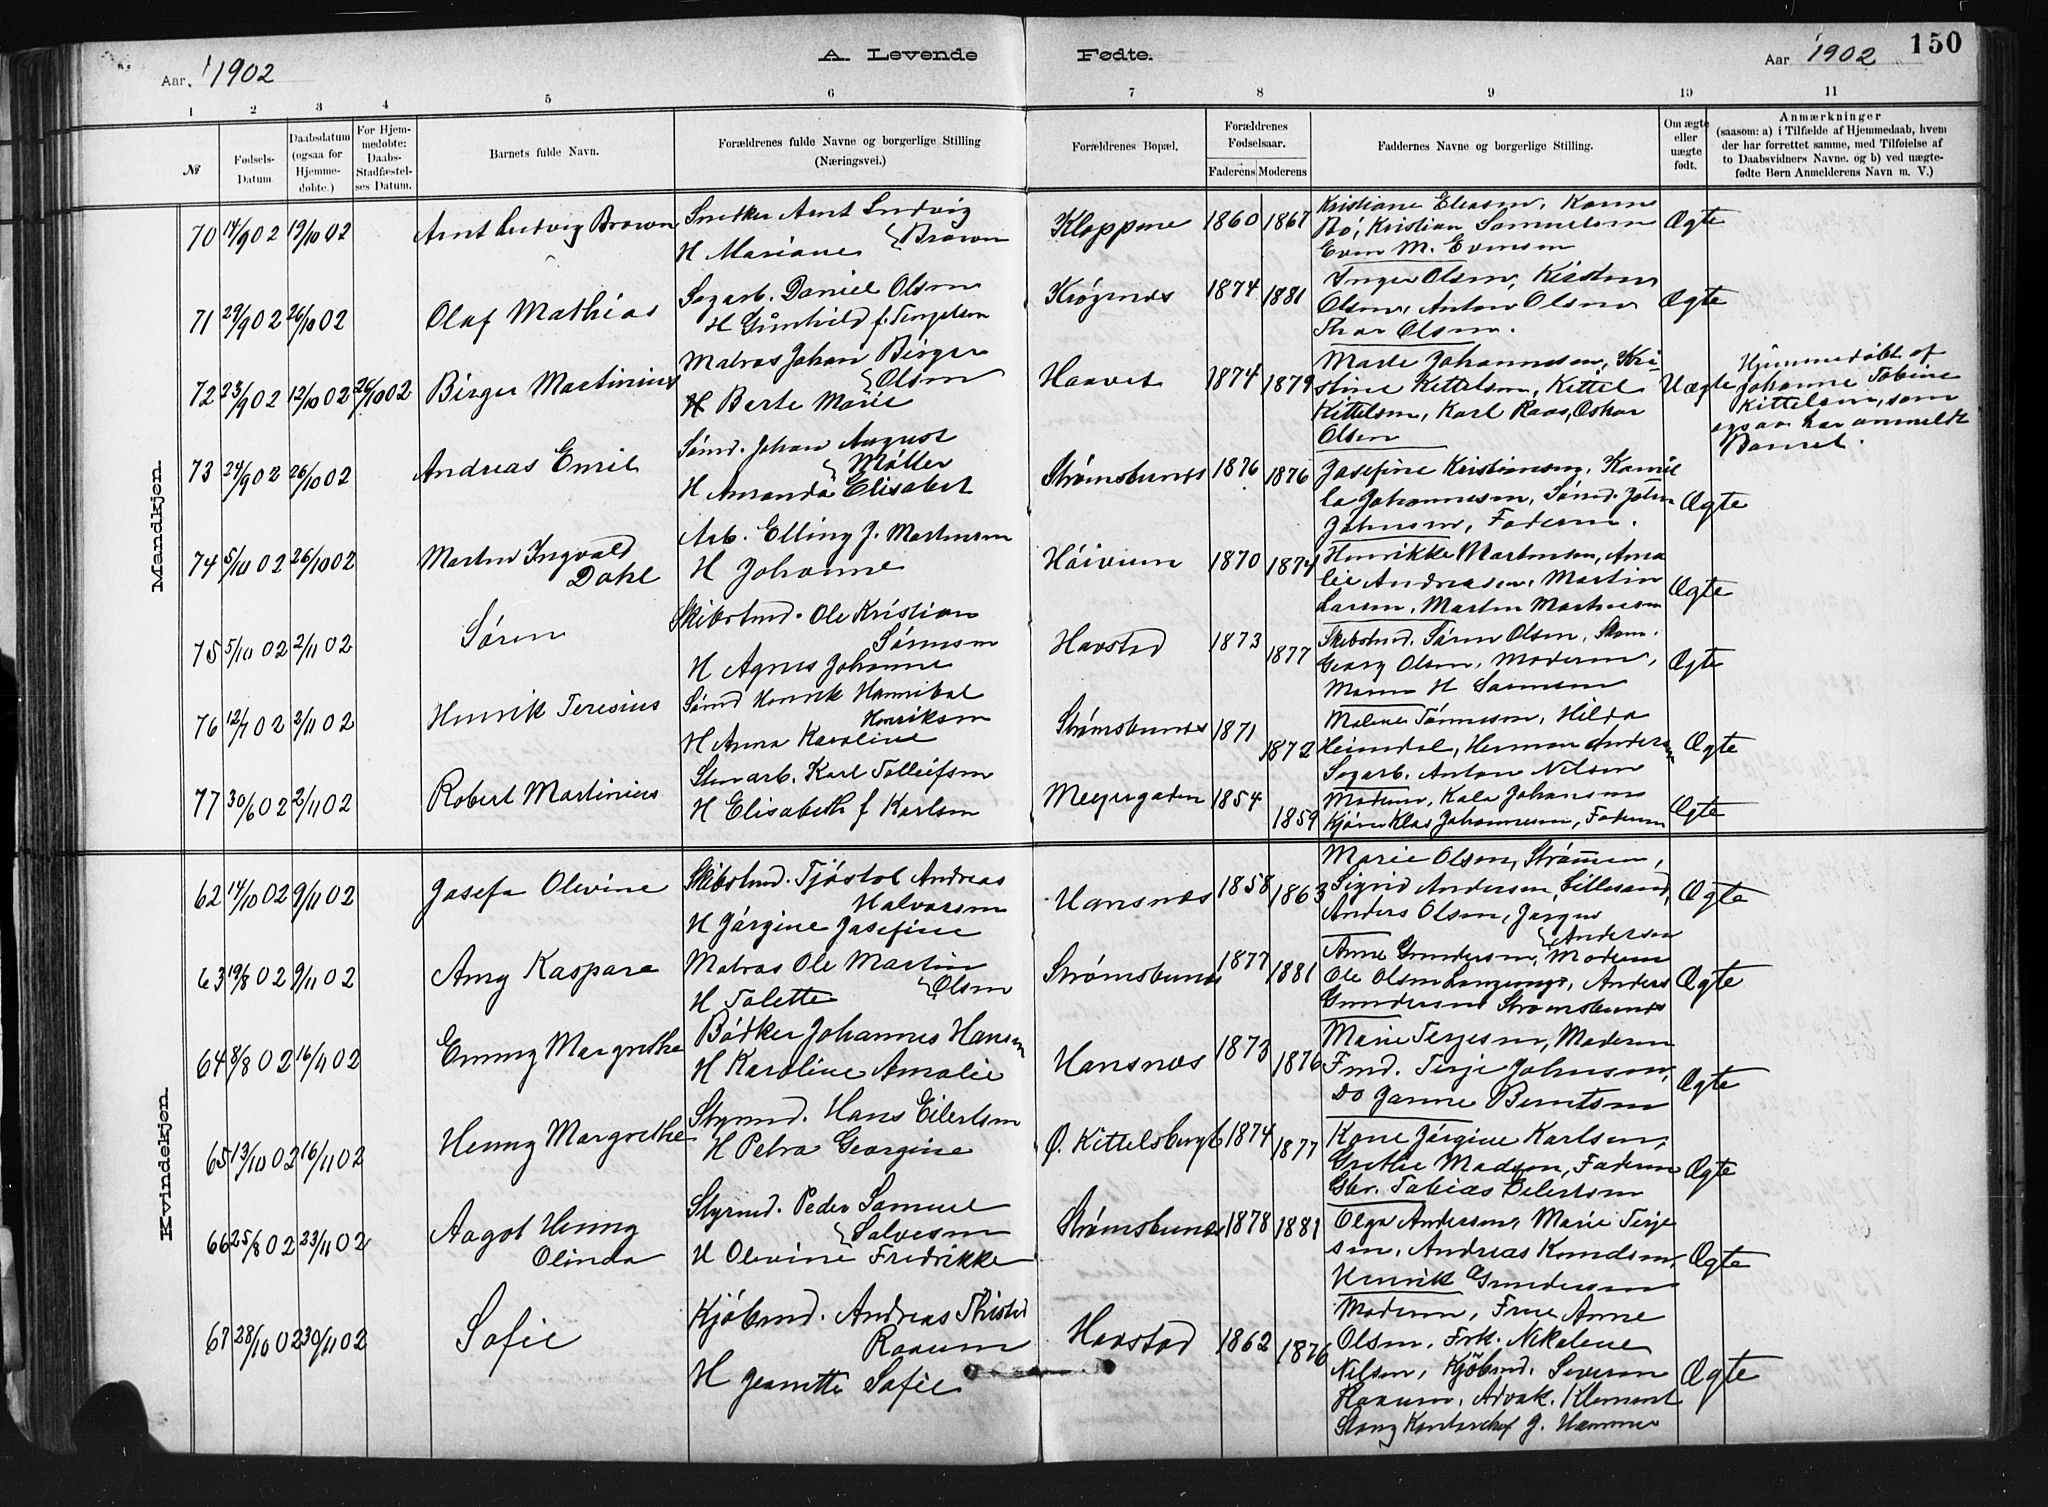 A. Levende Fødte.
150
Aar 1902
Aar 1902
1 2 3 4 5 6 7 8 9 10 11
№
Fødsels-Datum.
Daabsdatum (ogsaa for Hjemmedøbte.)
For Hjemmedøbte: Daabs-Stadfæstelses Datum.
Barnets fulde Navn.
Forældrenes fulde Navne og borgerlige Stilling (Næringsvei.)
Forældrenes Bopæl.
Forældrenes Fødselsaar.
Faderens Moderens
Faddernes Navne og borgerlige Stilling.
Om ægte eller uægte født.
Anmærkninger
(saasom: a) i Tilfælde af Hjemmedaab, hvem
der har forrettet samme, med Tilføielse af
to Daabsvidners Navne. og b) ved uægte-
fødte Børn Anmelderens Navn m. V.)
Mandkjøn.
70 14/9 02 19/10 02 Arnt Ludvig Brown
Snedker Arnt Ludvig
H Mariane } Brown
Kloppene 1860 1867
Kristiane Eliasen, Karen
Bö, Kristian Samuelsen
Even M. Evensen
Ægte
71 29/9 02 26/10 02 Olaf Mathias
Sagarb. Daniel Olsen
H Gunhild f. Tengelsen
Krøgenes 1874 1881
Inger Olsen, Kirsten
Olsen, Anton Olsen
Thor Olsen.
Ægte
72 23/9 02 12/10 02 26/10 02 Birger Martinius
Matros Johan Birger
} Olsen
H Berte Marie
Haavet 1874 1879
Marte Johannesen, Kri-
stine Kittelsen, Kittel
Kittelsen, Karl Roas, Oskar
Olsen
Uægte
Hjemmedøbt af
Johanne Tobine
Kittelsen, som
ogsaa har anmeldt
Barnet.
73 24/9 02 26/10 02 Andreas Emil
Sømd. Johan August
} Møller
H Amanda Elisabet
Strømsbunes 1876 1876
Josefine Kristiansen, Kamil
la Johannesen, Sømd. John
Johnsen, Faderen.
Ægte
74 5/10 02 26/10 02 Martin Ingvald
Dahl
Arb. Elling J. Martinsen
H Johanne
Høivun 1870 1874
Henrikke Martinsen, Ama
lie Andreasen, Martin
Larsen, Martin Martinsen
Ægte
75 5/10 02 2/11 02 Søren
Skibstmd. Ole Kristian
Sørensen
H Agnes Johanne
Havstad 1873 1877
Skibstmd. Søren Olsen, Skom.
Georg Olsen, Moderen,
Maren H Sørensen
Ægte
76 12/7 02 2/11 02 Henrik Teresius
Sømd Henrik Hannibal
Henriksen
H Anna Karoline
Strømsbunes 1871 1872
Malene Tønnesen, Hilda
Heimdal, Herman Andersen
Sagarb. Anton Nilsen
Ægte
77 30/6 02 2/11 02 Robert Martinius
Stenarb. Karl Tolleifsen
H Elisabeth f Karlsen
Meyergaden 1854 1859
Moderen, Kala Johansen
Kjøre Klas Johannesen, Faderen
Ægte
Kvindekjøn.
62 14/10 02 9/11 02 Josefa Olevine
Skibstmd. Tjøstol Andreas
Halvorsen
H Jørgine Josefine
Hansnæs 1858 1863
Marie Olsen, Strømmen,
Sigrid Andersen Lillesand,
Anders Olsen, Jørgen
} Andersen
Ægte
63 19/8 02 9/11 02 Amy Kaspara
Matros Ole Martin
H Tolette } Olsen
Strømsbunes 1877 1881
Anne Gundersen, Moderen
Ole Olsen Langang, Anders
Gundersen Strømsbunes
Ægte
64 8/8 02 16/11 02 Emmy Margrethe
Bødker Johannes Hansen
H Karoline Amalie
Hansnæs 1873 1876
Marie Terjesen, Moderen
Fmd. Terje Johnsen,
Do Janne Berntsen
Ægte
65 13/10 02 16/11 02 Henny Margrethe
Styrmd. Hans Eilertsen
H Petra Georgine
Ø. Kittelsbugt 1874 1877
Kone Jørgine Karlsen,
Grethe Madsen, Faderen
Gbr. Tobias Eilertsen
Ægte
66 25/8 02 23/11 02 Aagot Henny
Olinda
Styrmd. Peder Samuel
} Salvesen
H Olevine Fredrikke
Strømsbunes 1878 1881
Olga Andersen, Marie Terje
sen, Andreas Knudsen,
Henrik Gundersen
Ægte
67 28/10 02 30/11 02 Sofie
Kjøbmd. Andreas Thisted
Raaum
H Jeanette Sofie
Havstad 1862 1876
Moderen, Frue Anne
Olsen, Frk. Nikoline
Nilsen, Kjøbmd. Severin
Raaum, Advok. Klement
Stang Kontorchef J. Hammer
Ægte